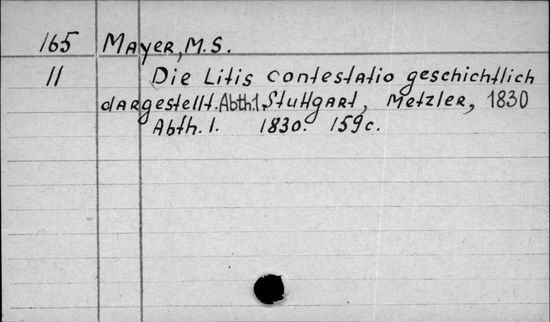 165 Mayer, M.S.
11 Die Litis contestatio geschichtlich
dargestellt. Abth.1. Stuttgart, Metzler, 1830
Abth. 1. 1830. 159c.